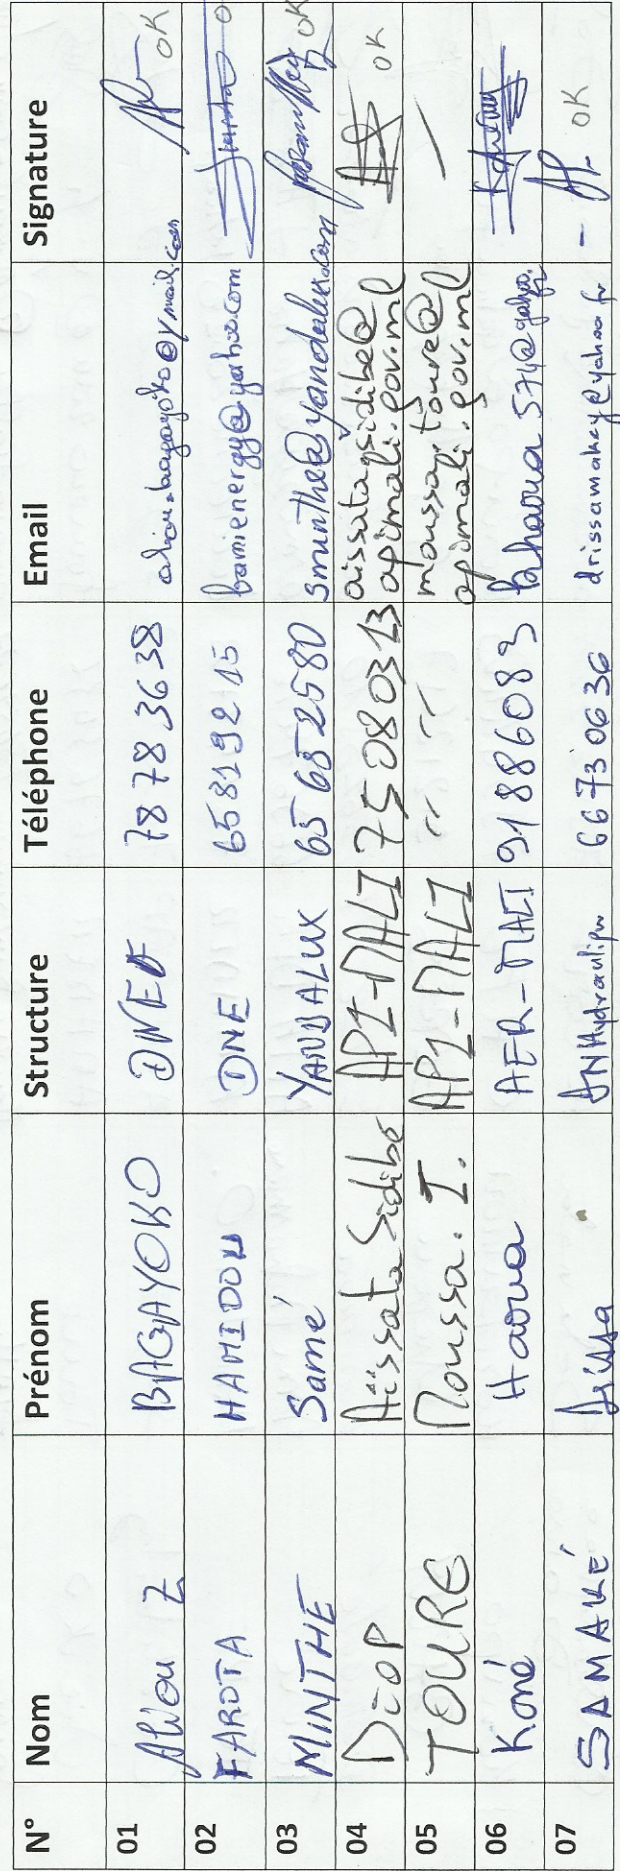 N° Nom Prénom Structure Téléphone Email Signature
01 Aliou Z BAGAYOKO DNEF 78 78 36 38 OK
02 FAROTA HAMIDOU DNE 65819215 bamienergy@yahoo.com
03 MINTHE Samé YANDALUX 65 65 2580 sminthe@yandalux.com OK
04 Diop Aïssata Sidibé API-MALI 75080313 aissata.sidibe@
apimali.gov.ml OK
05 TOURE Moussa. I. API-MALI " " moussa.toure@
apimali.gov.ml
06 Koné Haoua AER-MALI 91886083
07 SAMAKÉ Drissa DNHydraulique 66730636 drissamakey@yahoo.fr OK